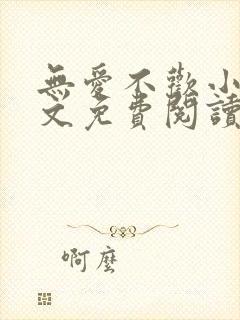 無愛不歡小
文免費閱讀
啊麼